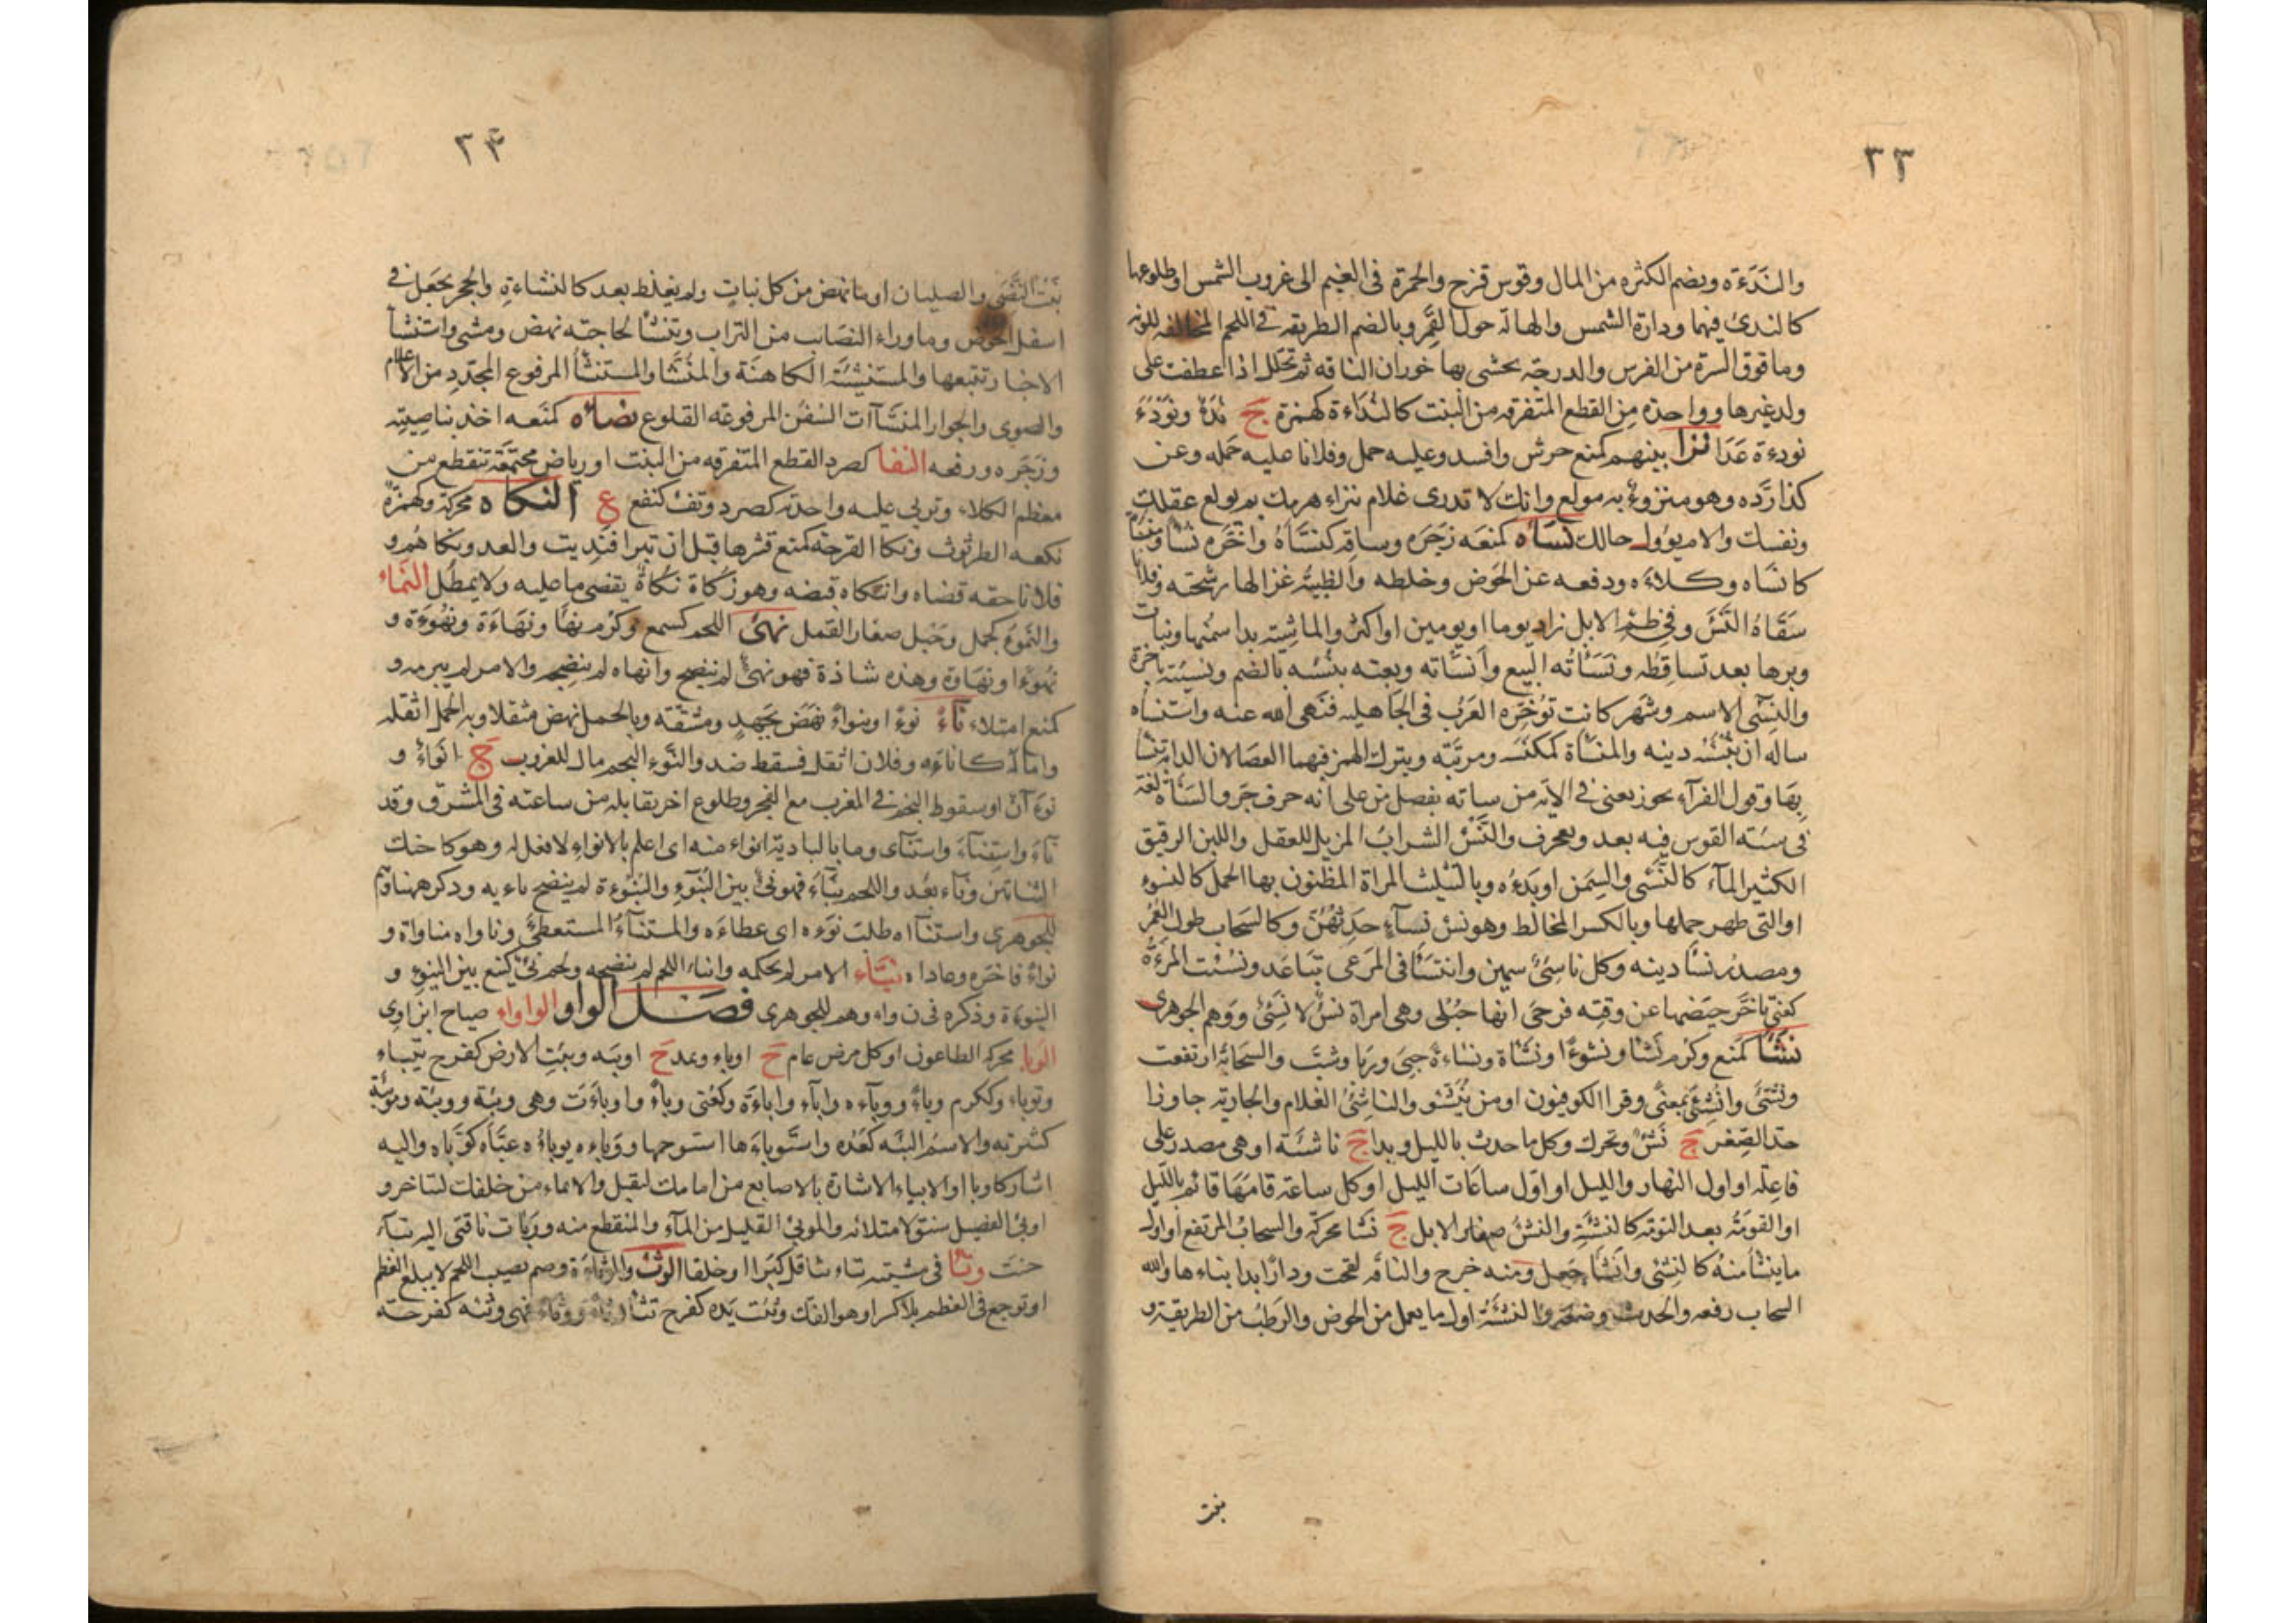 ٣٣
والنَدَءَة ويضم الكثره من المال وقوس قزح والحمرة فى الغيم الى غروب الشمس او طلوعها
كالندئ فيهما ودارة الشمس والهالة حول القمر وبالضم الطريقه فى اللحم المخالفه للونه
وما فوق السرة من الفرس والدرجة يحشى بها خوران الناقه ثم تخلل اذا عطفت على
ولد غيرها وواحدة من القطع المتفرقه من النبت كالنداءة كهمزة ج ندء ونودء
نودءة عدا نزا بينهم كمنع حرش وافسد وعليه حمل وفلانا عليه حمله وعن
كذا ردّه وهو منزوء به مولع وانك لا تدرى غلام ينزاء هرمك بم يولع عقلك
ونفسك والام يؤول حالك نساه كمنعه زجره وساقه كنسّاه واخّره نسا ومنساة
كانساه وكلاءه ودفعه عن الحوض وخلطه والظبية غزالها رشحته وفلانا
سقاه النسء وفى ظمء الابل زاد يوما او يومين او اكثر والماشية بدا سمنها ونبات
وبرها بعد تساقطه ونساته البيع وانساته وبعته بنسئه بالضم ونسيئة باخرة
والنسئ الاسم وشهر كانت توخره العرب فى الجاهليه فنهى الله عنه واستنساه
ساله ان ينسئه دينه والمنساة كمكنسه ومرتبة وبترك الهمز فيهما العصا لان الدابة تنسا
بها وقول الفرآء يجوز يعنى فى الآية من ساته بفصل من على انه حرف جر والساة لغة
فى سئة القوس فيه بعد وتعجرف والنسء الشراب المزيل للعقل واللبن الرقيق
الكثير المآء كالنسئ والسمن او بدءه وبالتثليث المراة المظنون بها الحمل كالنسوء
او التى ظهر حملها وبالكسر المخالط وهو نسء نسآء حدثهن وكالسحاب طول العمر
ومصدر نسا دينه وكل ناسئ سمين وانتسا فى المرعى تباعد ونسئت المرءة
كعنى تاخر حيضها عن وقته فرجى انها حبلى وهى امراة نسء لا نسئ ووهم الجوهرى
نشا كمنع وكرم نشا ونشوءا ونشاة ونشاءة حيى وربا وشب والسحابة ارتفعت
ونشئ وانشئ بمعنى وقرا الكوفيون اومن ينشو والناشئ الغلام والجارية جاوزا
حد الصغر ج نشء وتحرك وكل ما حدث بالليل وبدا ج ناشئة او هى مصدر على
فاعلة او اول النهار والليل او اول ساعات الليل او كل ساعة قامها قائم بالليل
او القومة بعد النومة كالنشئة والنشء صغار الابل ج نشا محركة والسحاب المرتفع او اول
ما ينشا منه كالنشئ وانشا جعل ومنه خرج والناقة لقحت ودارا بدا بناءها والله
السحاب رفعه والحديث وضعه والنشئة اول ما يعمل من الحوض والرطب من الطريقة و
نبت
٣٤
نبت النصى والصليان او ما نهض من كل نبات ولم يغلظ بعد كالنشاءة والحجر يجعل فى
اسفل الحوض وما وراء النصائب من التراب وتنشا لحاجته نهض ومشى واستنشا
الاخبار تتبعها والمستنشئة الكاهنة والمنشا والمستنشا المرفوع المجدد من الاعلام
والصوى والجوار المنشآات السفن المرفوعه القلوع نصاه كمنعه اخذ بناصيته
وزجره ورفعه النفا كصرد القطع المتفرقه من النبت او رياض مجتمعة تنقطع من
معظم الكلاء وتربى عليه واحدته كصرد ونفء كنفع ع النكاه محركة وكهمزة
نكعه الطرثوث ونكا القرحة كمنع قشرها قبل ان تبرا فنديت والعدو نكاهم و
فلانا حقه قضاه وانتكاه قبضه وهو زكاة نكاة يقضى ما عليه ولا يمطل النماء
والنموء كجمل وحبل صغار القمل نهئ اللحم كسمع وكرم نها ونهاءة ونهوءة و
نهوءا ونهاوة وهذه شاذة فهو نهئ لم ينضج وانهاه لم ينضجه والامر لم يبرمه و
كمنع امتلاء ناء نوءا وبنواء نهض بجهد ومشقة وبالحمل نهض مثقلا وبه الحمل اثقله
واماله كاناءه وفلان اثقل فسقط ضد والنوء النجم مال للغروب ج انواء و
نوءآن او سقوط النجم فى المغرب مع الفجر وطلوع اخر يقابله من ساعته فى المشرق وقد
ناء واستناء واستنآى وما بالبادية انواء منه اى اعلم بالانواء لا فعل له وهو كاحنك
الشاتين وناء بعد واللحم يناء فهو نئ بين النيوء والنيوءة لم ينضج ياءيه وذكره هنا وهم
للجوهرى واستنآاه طلب نوءه اى عطاءه والمستناء المستعطى وناواه مناواة و
نواء فاخره وعاداه نياء الامر لم يحكمه واناء اللحم لم ينضجه ولحم نئ كنيع بين النيوء و
النيوءة وذكره فى ن واء وهم للجوهرى فصل الواو الواواء صياح ابن اوى
الوبا محركة الطاعون او كل مرض عام ج اوباء ويمد ج اوبيه وبئت الارض كفرح تيباء
وتوباء وككرم وباء ووباءه وابآء واباءة وكعنى وباء واوباءت وهى وبئة ووبيئة وموبئة
كثرته والاسم البئه كعده واستوباءها استوخمها ووباءه يوباؤه عبّاه كوبّاه واليه
اشار كاوبا او الايباء الاشارة بالاصابع من امامك ليقبل والايماء من خلفك لتاخر و
اوبئ الفصيل سنق لامتلائه والموبئ القليل من المآء والمنقطع منه ووبات ناقتى اليه تبآء
حنت وتا فى مشيته يتاء تثاقل كبرا او خلقا الوثء والوثاءة وصم يصيب اللحم لا يبلغ العظم
او توجع فى العظم بلا كسر او هو الفك وثئت يده كفرح تثا وثاء ووثاء فهى وثئه كفرحه